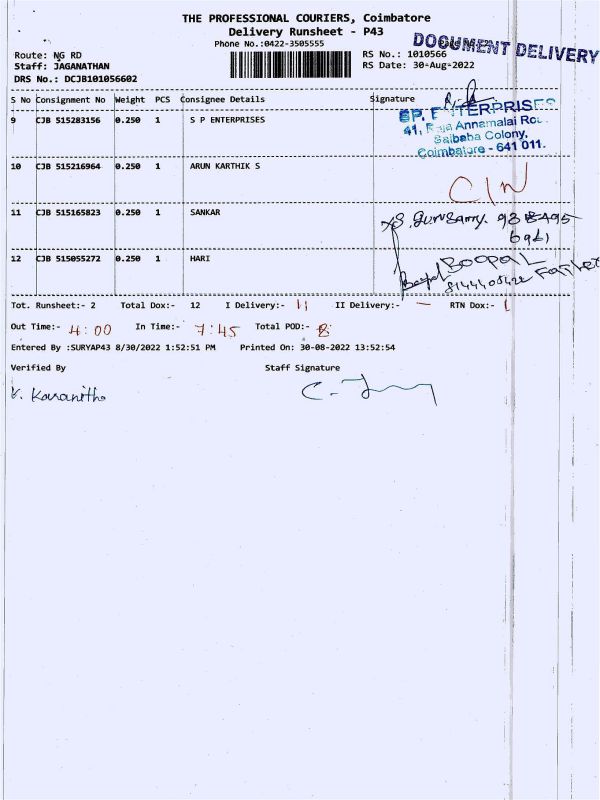 THE PROFESSIONAL COURIERS, Coimbatore
Delivery Runsheet - P43
Phone No.:0422-3505555
DOCUMENT DELIVERY
Route: NG RD
RS No.: 1010566
Staff: JAGANATHAN
RS Date: 30-Aug-2022
DRS No.: DCJB101056602
S No Consignment No Weight PCS Consignee Details Signature
9 CJB 515283156 0.250 1 S P ENTERPRISES
SP. ENTERPRISES
41, Raja Annamalai Road,
Saibaba Colony,
Coimbatore - 641 011.
10 CJB 515216964 0.250 1 ARUN KARTHIK S
C/N
11 CJB 515165823 0.250 1 SANKAR
12 CJB 515055272 0.250 1 HARI
BOOPAL
Father
Tot. Runsheet:- 2 Total Dox:- 12 I Delivery:- 11 II Delivery:- — RTN Dox:- 1
Out Time:- 4:00 In Time:- 7:45 Total POD:- 8
Entered By :SURYAP43 8/30/2022 1:52:51 PM Printed On: 30-08-2022 13:52:54
Verified By Staff Signature
V. Kavanitha